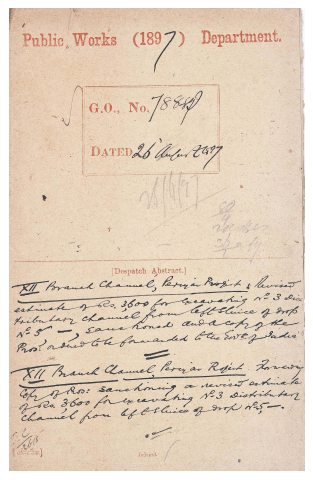 Public Works (1897) Department.
G.O., No. 788
DATED 26 August 1897
26/8/97
[Despatch Abstract.]
XII Branch Channel, Periyar Project, Revised
estimate of Rs. 3,600 for excavating No. 3 Dis
tributary channel from left sluice of drop
No. 5 —, sanctioned and a copy of the
Pros. ordered to be forwarded to the Govt. of India
XII Branch Channel, Periyar Project. Forwards
Copy of Pros. sanctioning a revised estimate
of Rs. 3600 for excavating No. 3 Distributary
Channel from left sluice of drop No. 5, —.